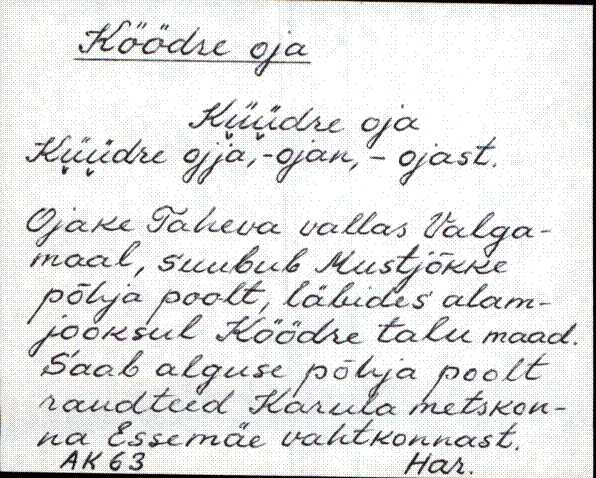 Köödre oja
Kü̬ü̬dre oja
Kü̬ü̬dre ojja, -ojan, - ojast.
Ojake Taheva vallas Valga-
maal, suubub Mustjõkke
põhja poolt, läbides alam-
jooksul Köödre talu maad.
Saab alguse põhja poolt
raudteed Karula metskon-
na Essemäe vahtkonnast.
AK 63 Har.